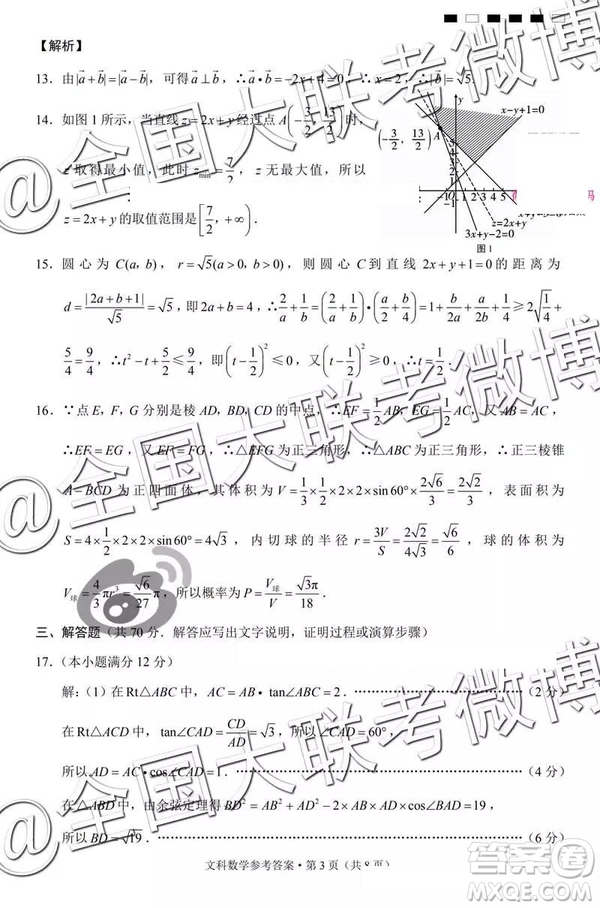 【解析】
13. 由|a⃗+b⃗|=|a⃗-b⃗|, 可得a⃗⊥b⃗, ∴a⃗•b⃗=-2x+4=0, ∴x=2, ∴|b⃗|=√5.
14. 如图1所示, 当直线z=2x+y经过点A(-3/2, 13/2)时,
z取得最小值, 此时z_min=7/2, z无最大值, 所以
z=2x+y的取值范围是[7/2, +∞).
(-3/2, 13/2)
A
y
x-y+1=0
-1 0 1 2 3 4 5
-1
x+y-5=0
z=2x+y
3x+y-2=0
图1
15. 圆心为C(a, b), r=√5(a>0, b>0), 则圆心C到直线2x+y+1=0的距离为
d=|2a+b+1|/√5=√5, 即2a+b=4, ∴2/a+1/b=(2/a+1/b)•(a/2+b/4)=1+b/2a+a/2b+1/4≥2√(1/4)+
5/4=9/4, ∴t²-t+5/2≤9/4, 即(t-1/2)²≤0, 又(t-1/2)²≥0, ∴t=1/2.
16. ∵点E, F, G分别是棱AD, BD, CD的中点, ∴EF=1/2AB, EG=1/2AC, 又AB=AC,
∴EF=EG, 又EF=FG, ∴△EFG为正三角形, ∴△ABC为正三角形, ∴正三棱锥
A-BCD为正四面体, 其体积为V=1/3×1/2×2×2×sin60°×2√6/3=2√2/3, 表面积为
S=4×1/2×2×2×sin60°=4√3, 内切球的半径r=3V/S=2√2/4√3=√6/6, 球的体积为
V球=4/3πr³=√6/27π, 所以概率为P=V球/V=√3π/18.
三、解答题(共70分. 解答应写出文字说明, 证明过程或演算步骤)
17. (本小题满分12分)
解: (1)在Rt△ABC中, AC=AB•tan∠ABC=2. ……(2分)
在Rt△ACD中, tan∠CAD=CD/AD=√3, 所以∠CAD=60°,
所以AD=AC•cos∠CAD=1. ……(4分)
在△ABD中, 由余弦定理得BD²=AB²+AD²-2×AB×AD×cos∠BAD=19,
所以BD=√19. ……(6分)
文科数学参考答案•第3页(共8页)
@全国大联考微博
@全国大联考微博
@全国大联考微博
答案圈